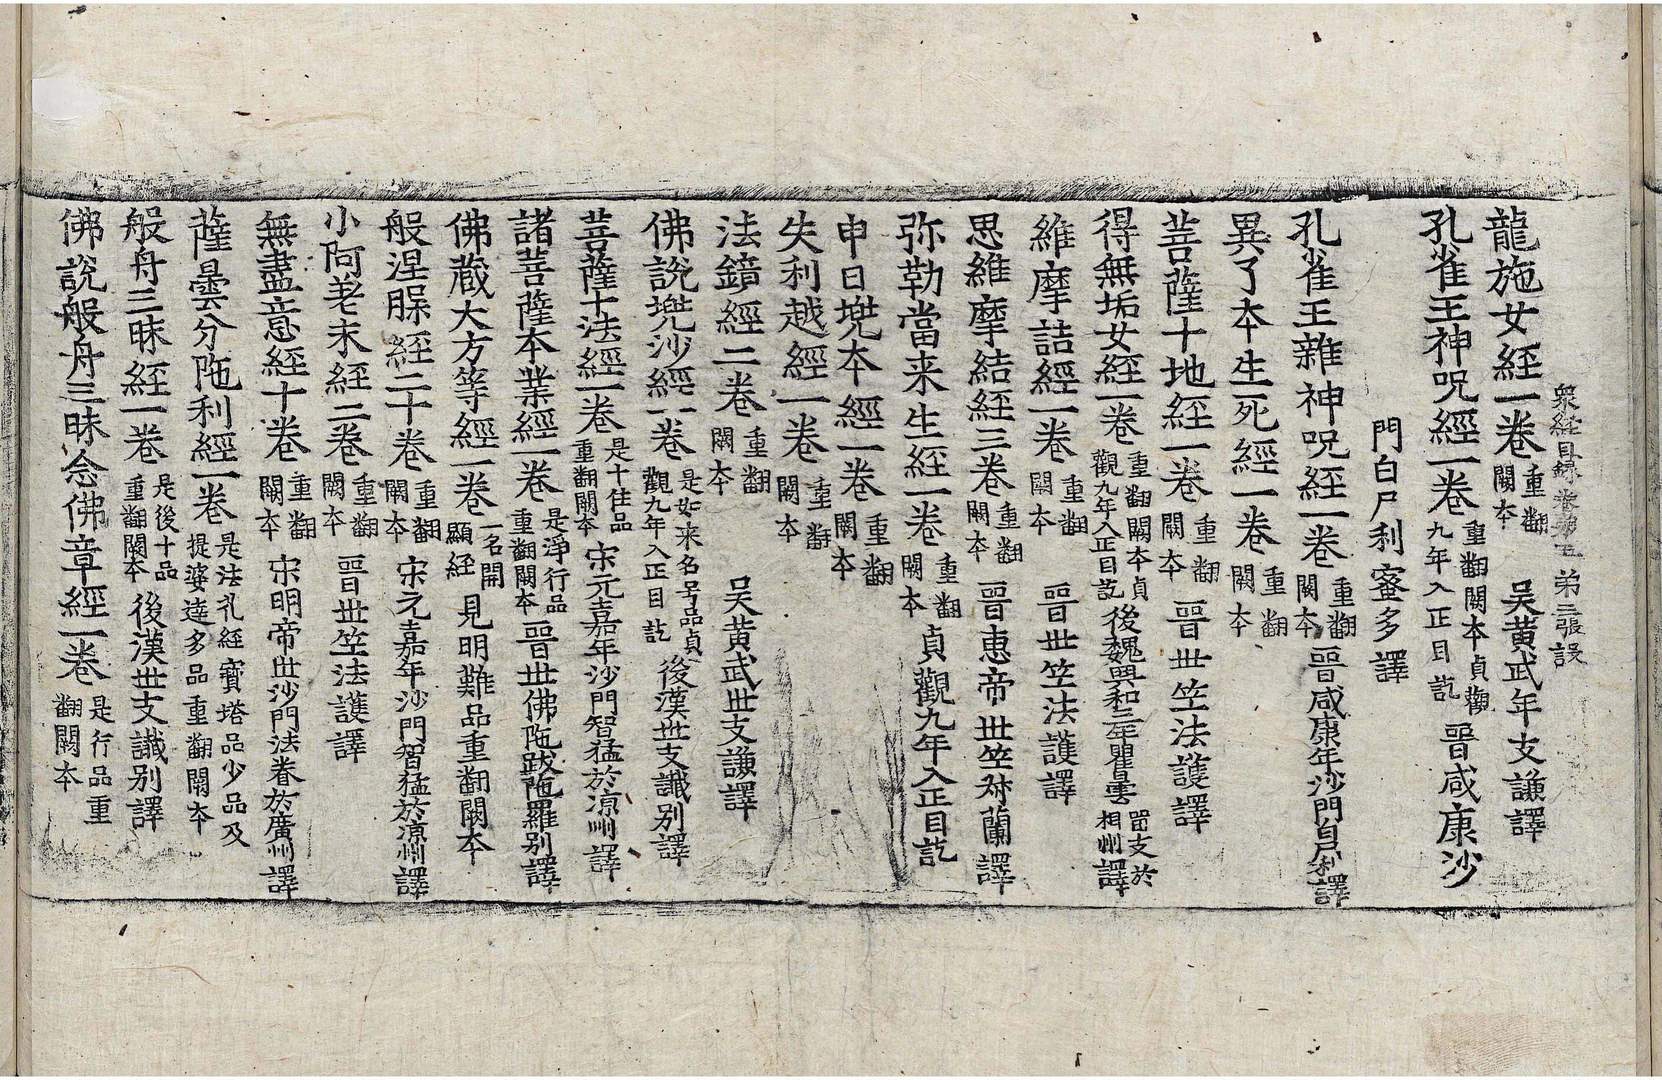 衆経目録卷第五 第三張 設
龍施女経一卷 重翻闕本 吴黄武年支謙譯
孔雀王神呪經一卷 重翻闕本貞觀九年入正目訖 晉咸康沙
門白尸利蜜多譯
孔雀王雜神呪經一卷 重翻闕本 晉咸康年沙門白尸利譯
異了本生死經一卷 重翻闕本
菩薩十地経一卷 重翻闕本 晉世竺法護譯
得無垢女經一卷 重翻闕本貞觀九年入正目訖 後魏興和三年瞿曇留支於相州譯
維摩詰經一卷 重翻闕本 晉世竺法護譯
思維摩結経三卷 重翻闕本 晉惠帝世竺𣗳蘭譯
弥勒當来生経一卷 重翻闕本 貞觀九年入正目訖
申日兠本經一卷 重翻闕本
失利越經一卷 重翻闕本
法鏡經二卷 重翻闕本 吴黄武世支謙譯
佛說兠沙經一卷 是如来名号品貞觀九年入正目訖 後漢世支讖別譯
菩薩十法經一卷 是十住品重翻闕本 宋元嘉年沙門智猛於凉州譯
諸菩薩本業經一卷 是淨行品重翻闕本 晉世佛陁跋陁羅别譯
佛藏大方等經一卷 一名問顯経 見明難品重翻闕本
般涅槃経二十卷 重翻闕本 宋元嘉年沙門智猛於凉州譯
小阿差末経二卷 重翻闕本 晉世竺法護譯
無盡意經十卷 重翻闕本 宋明帝世沙門法眷於廣州譯
薩曇分陁利經一卷 是法花經寶塔品少品及提婆達多品重翻闕本
般舟三昧經一卷 是後十品重翻闕本 後漢世支讖別譯
佛說般舟三昧念佛章經一卷 是行品重翻闕本